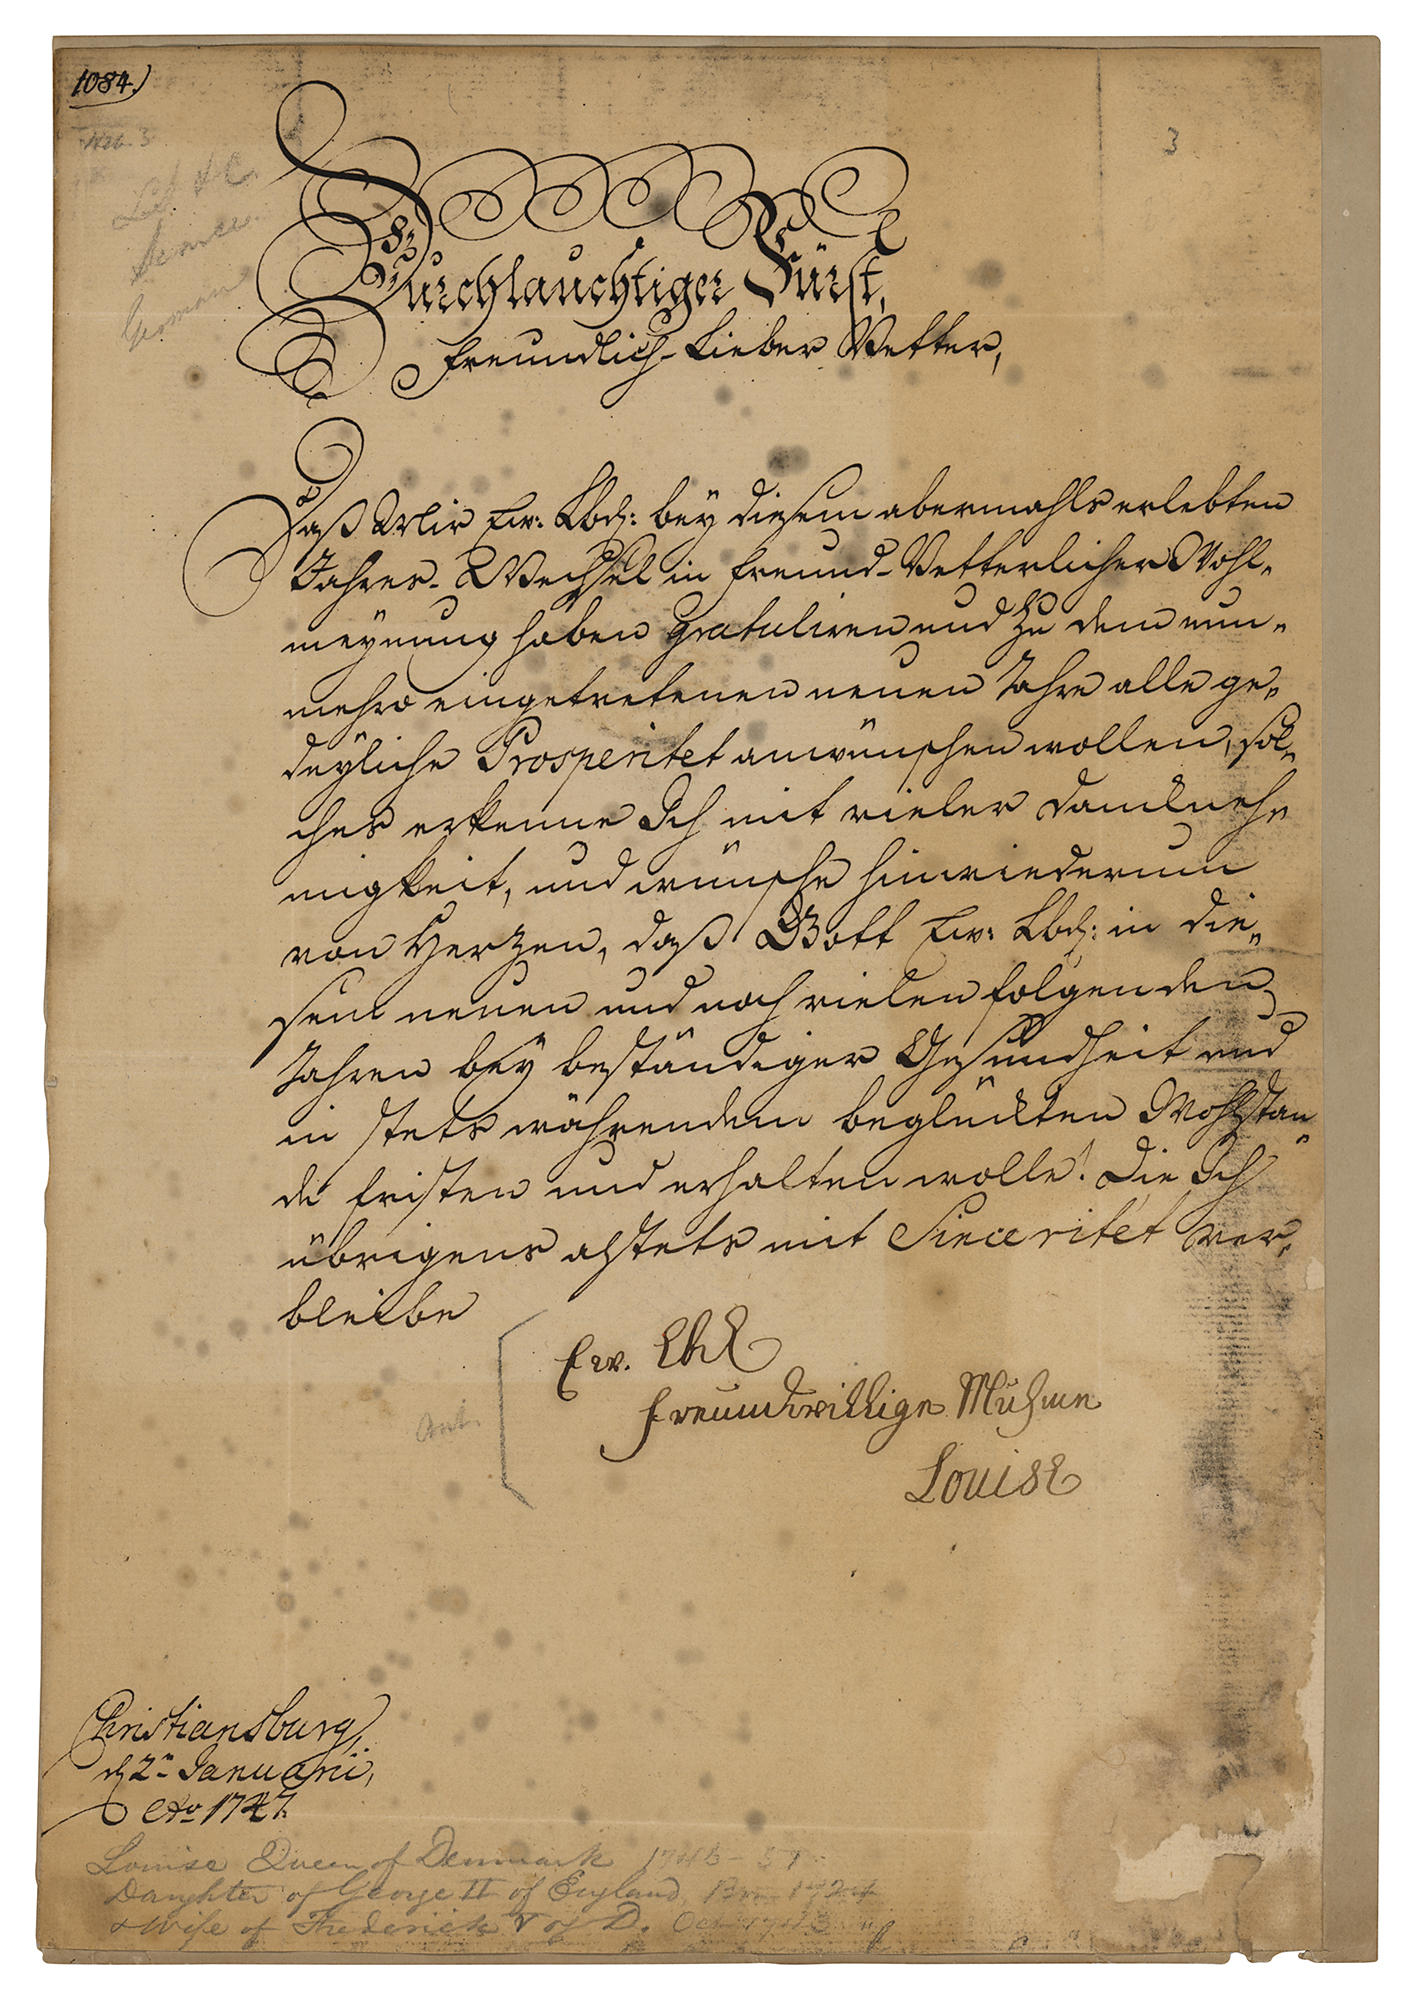 1084.)
No. 3
3
L.S. & C.
German
Durchlauchtiger Fürst,
Freundlich-Lieber Vetter,
Daß Mir Ew: Lbd: bey diesem abermahls erlebten
Jahres-Wechsel in Freund-Vetterlicher Wohl-
meynung haben gratuliren und zu dem nun-
mehro eingetretenen neuen Jahre alle ge-
deyliche Prosperitet anwünschen wollen, sol-
ches erkenne Ich mit vieler Dancknehm-
migkeit, und wünsche hinwiederum
von Herzen, daß Gott Ew: Lbd: in die-
sem neuen und noch vielen folgenden
Jahren bey beständiger Gesundheit und
in stets währendem beglückten Wohlstan-
de fristen und erhalten wolle! Die Ich
übrigens a stets mit Sinceritet ver-
bleibe
Ew. Lbd
freundwillige Muhme
Louise
Christiansburg,
d. 2n Januarii,
Ao 1747.
Louise Queen of Denmark 1746-51
Daughter of George II of England, Born 1724
& Wife of Frederick V of D. Oct 1743